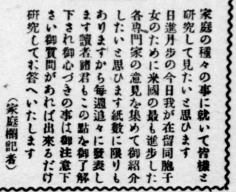 家庭の種々の事に就いて皆樣と
研究して見たいと思ひます
日進月步の今日我が在留同胞子
女のために米國の最も進步した
各專門家の意見を集めて御紹介
したいと思ひます紙數に限りも
ありますから每週追々に發表し
ます讀者諸君もこの點を御了解
下され御心づきの事は御注意下
さい御質問があれば出來るだけ
研究してお答へいたします
(家庭欄記者)